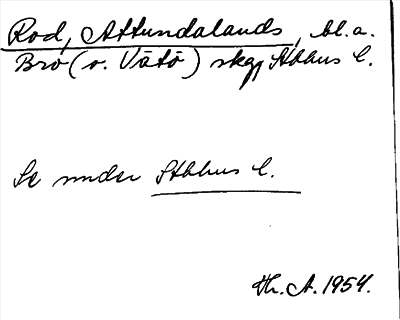 Rod, Attundalands, bl.a.
Bro (o. Vätö) skg, Sthlms l.
Se under Sthlms l.
Th. A. 1954.